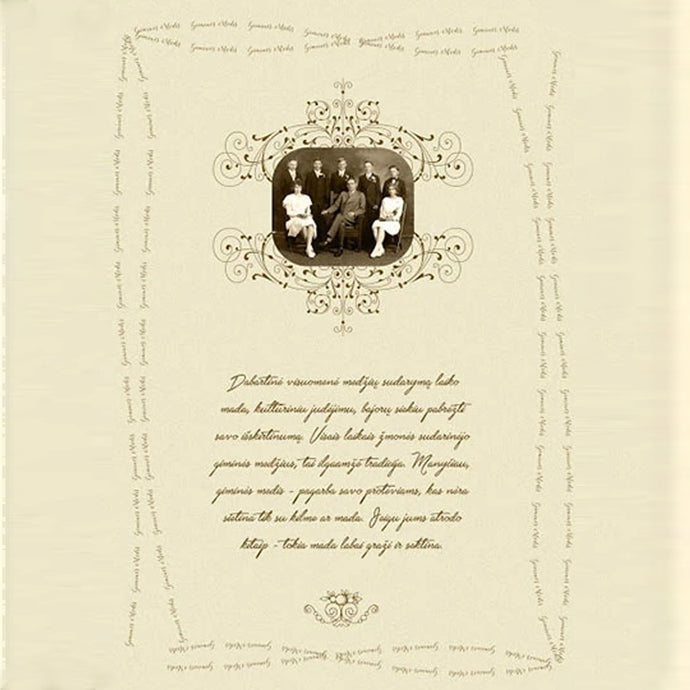 Giminės Medis
Dabartinė visuomenė medžių sudarymą laiko
mada, kultūriniu judėjimu, bajorų siekiu pabrėžti
savo išskirtinumą. Visais laikais žmonės sudarinėjo
giminės medžius, tai ilgaamžė tradicija. Manyčiau,
giminės medis - pagarba savo protėviams, kas nėra
sietina tik su kilme ar mada. Jeigu jums atrodo
kitaip - tokia mada labai graži ir sektina.